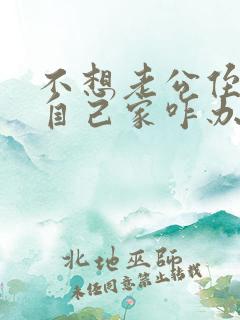 不想老公住
自己家咋办
北地巫师
未经同意禁止转载